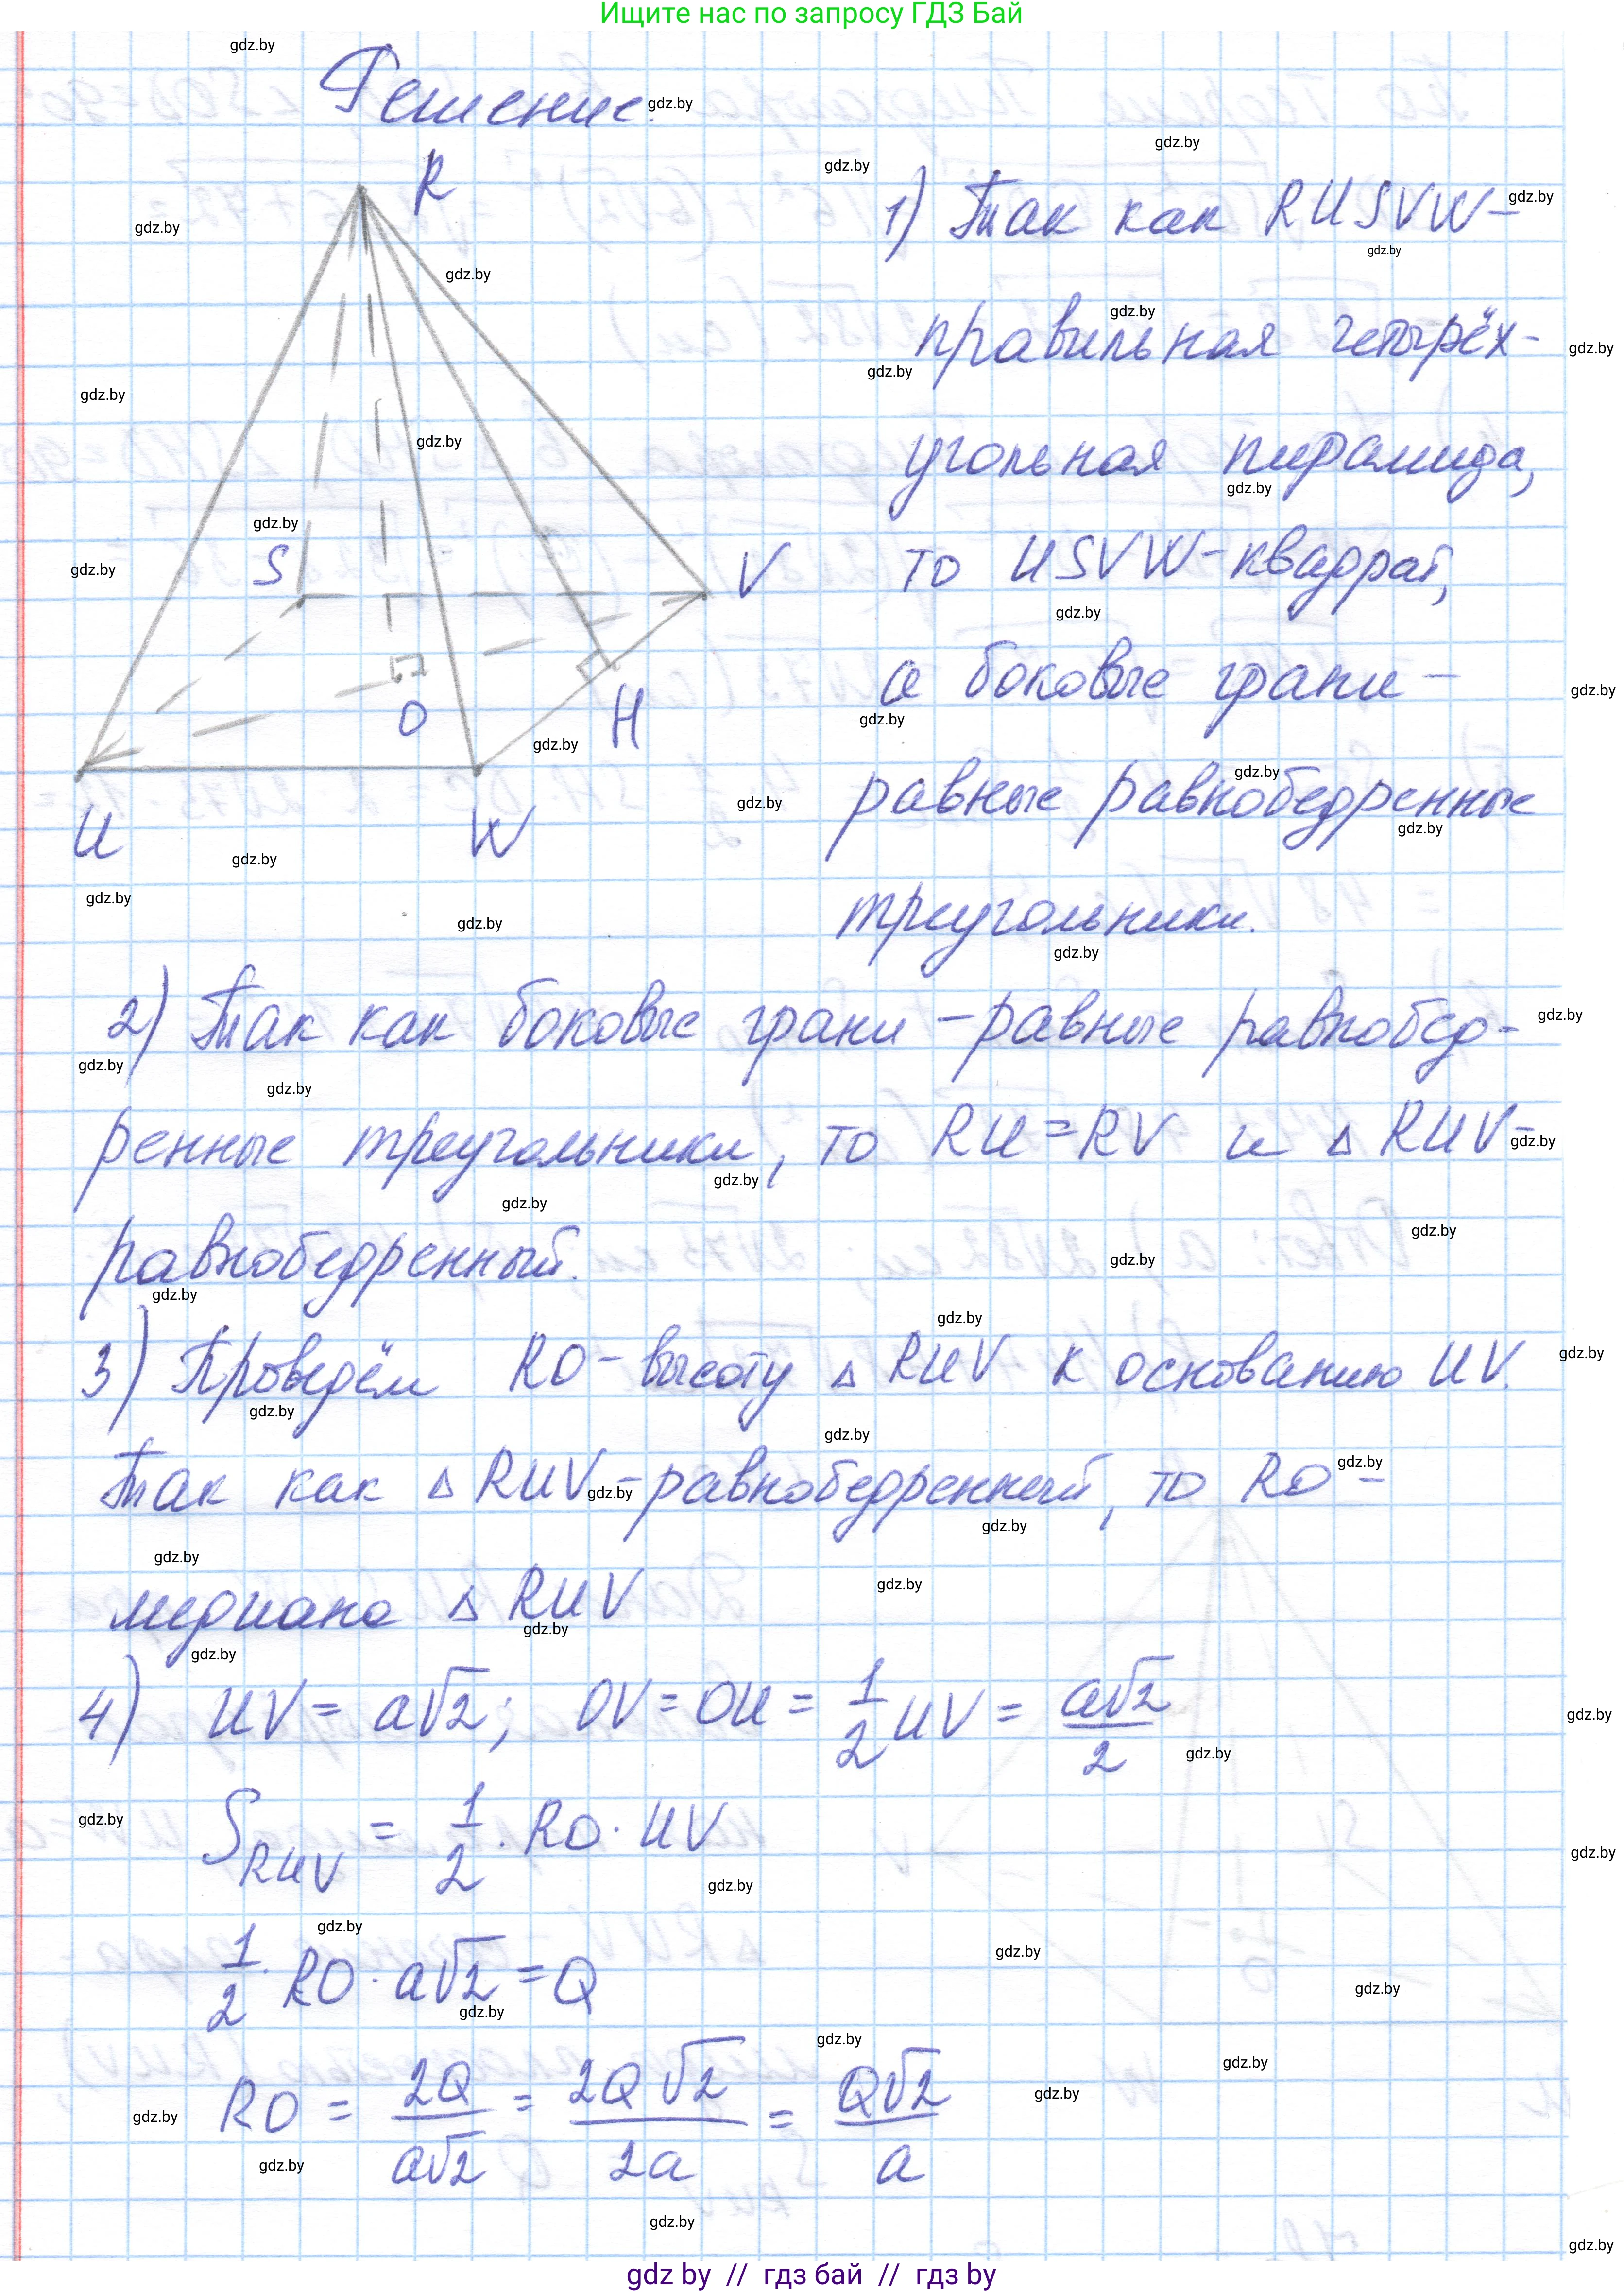 Ищите нас по запросу ГДЗ Бай
Решение:
R
S
V
O
H
U
W
1) Так как RUSVW-
правильная четырёх-
угольная пирамида,
то USVW-квадрат,
а боковые грани -
равные равнобедренные
треугольники.
2) Так как боковые грани -равные равнобед-
ренные треугольники, то RU=RV и △ RUV-
равнобедренный.
3) Проведём RO- высоту △ RUV к основанию UV.
Так как △ RUV-равнобедренный, то RO -
медиана △ RUV
4) UV = a√2; OV = OU = 1/2 UV = a√2/2
S RUV = 1/2 · RO · UV
1/2 · RO · a√2 = Q
RO = 2Q/a√2 = 2Q√2/2a = Q√2/a
gdz by // гдз бай // гдз by